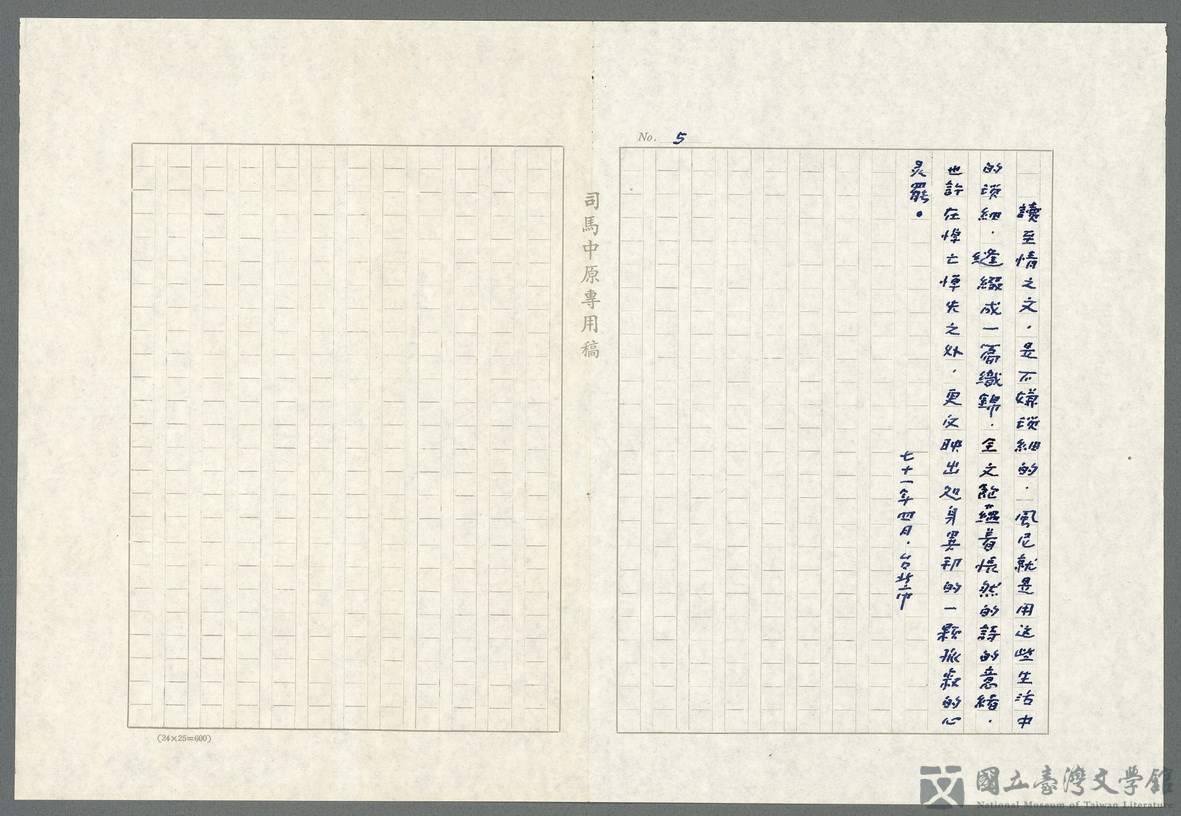 No. 5
讀至情之文，是不嫌瑣細的，風尼就是用这些生活中
的瑣細，縫綴成一織錦，全文飽蘊着悵然的詩的意緒，
也許在悼亡悼失之外，更反映出处身異邦的一顆孤寂的心
灵罷。
七十一年四月，台北市
司馬中原專用稿
(24×25=600)
國立臺灣文學館
National Museum of Taiwan Literature